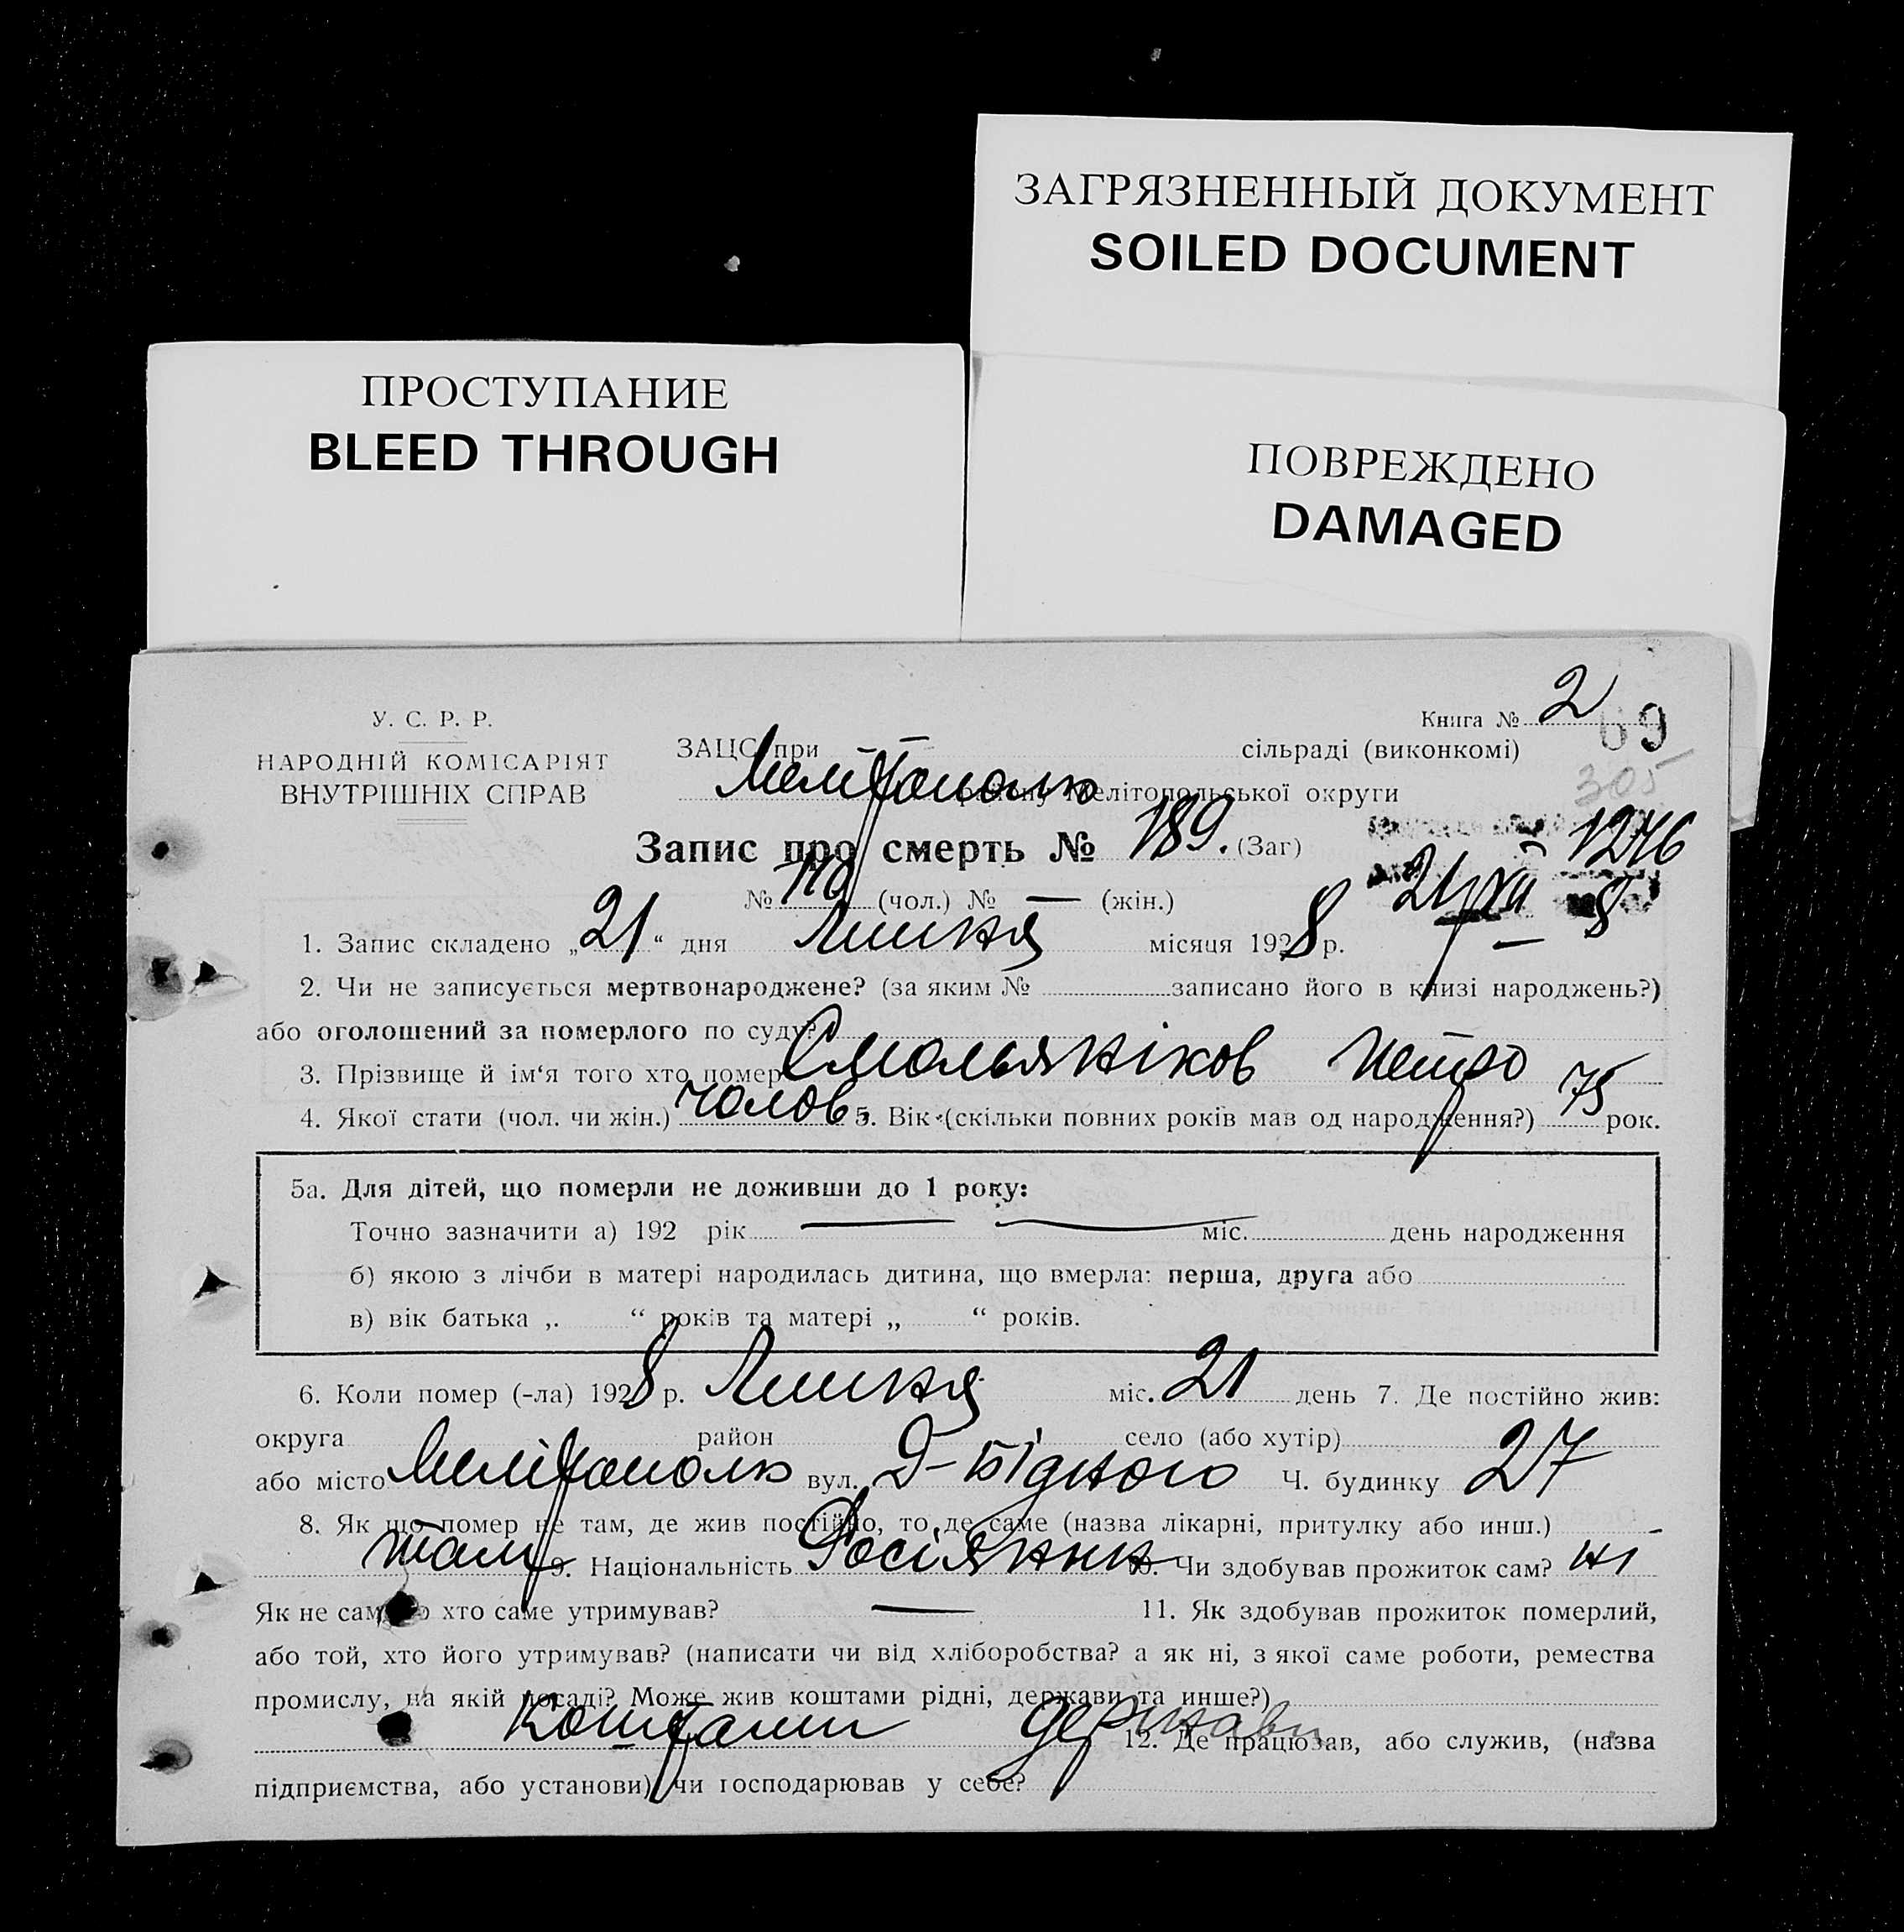 ЗАГРЯЗНЕННЫЙ ДОКУМЕНТ
SOILED DOCUMENT
ПРОСТУПАНИЕ
BLEED THROUGH
ПОВРЕЖДЕНО
DAMAGED
У. С. Р. Р.
НАРОДНІЙ КОМІСАРІЯТ
ВНУТРІШНІХ СПРАВ
Книга № 2
69
305
ЗАЦС при сільраді (виконкомі)
Мелітополь району Мелітопольської округи
Запис про смерть № 189. (Заг)
1246
№ 110 (чол.) № — (жін.)
21/VII 8
1. Запис складено „21“ дня Липня місяця 1928 р.
2. Чи не записується мертвонароджене? (за яким № записано його в книзі народжень?)
або оголошений за померлого по суду?
3. Прізвище й ім‘я того хто помер Смольяніков Петро
4. Якої стати (чол. чи жін.) чолов. 5. Вік (скільки повних років мав од народження?) 75 рок.
5а. Для дітей, що померли не доживши до 1 року:
Точно зазначити а) 192 рік — міс. день народження
б) якою з лічби в матері народилась дитина, що вмерла: перша, друга або
в) вік батька „ “ років та матері „ “ років.
6. Коли помер (-ла) 1928 р. Липня міс. 21 день 7. Де постійно жив:
округа район село (або хутір)
або місто Мелітополь вул. Д-Бідного Ч. будинку 27
8. Як що помер не там, де жив постійно, то де саме (назва лікарні, притулку або инш.)
там 9. Національність Росіянин 10. Чи здобував прожиток сам? ні
Як не сам, то хто саме утримував? — 11. Як здобував прожиток померлий,
або той, хто його утримував? (написати чи від хліборобства? а як ні, з якої саме роботи, ремества
промислу, на якій посаді? Може жив коштами рідні, держави та инше?)
Коштами держави 12. Де працював, або служив, (назва
підприємства, або установи) чи господарював у себе?